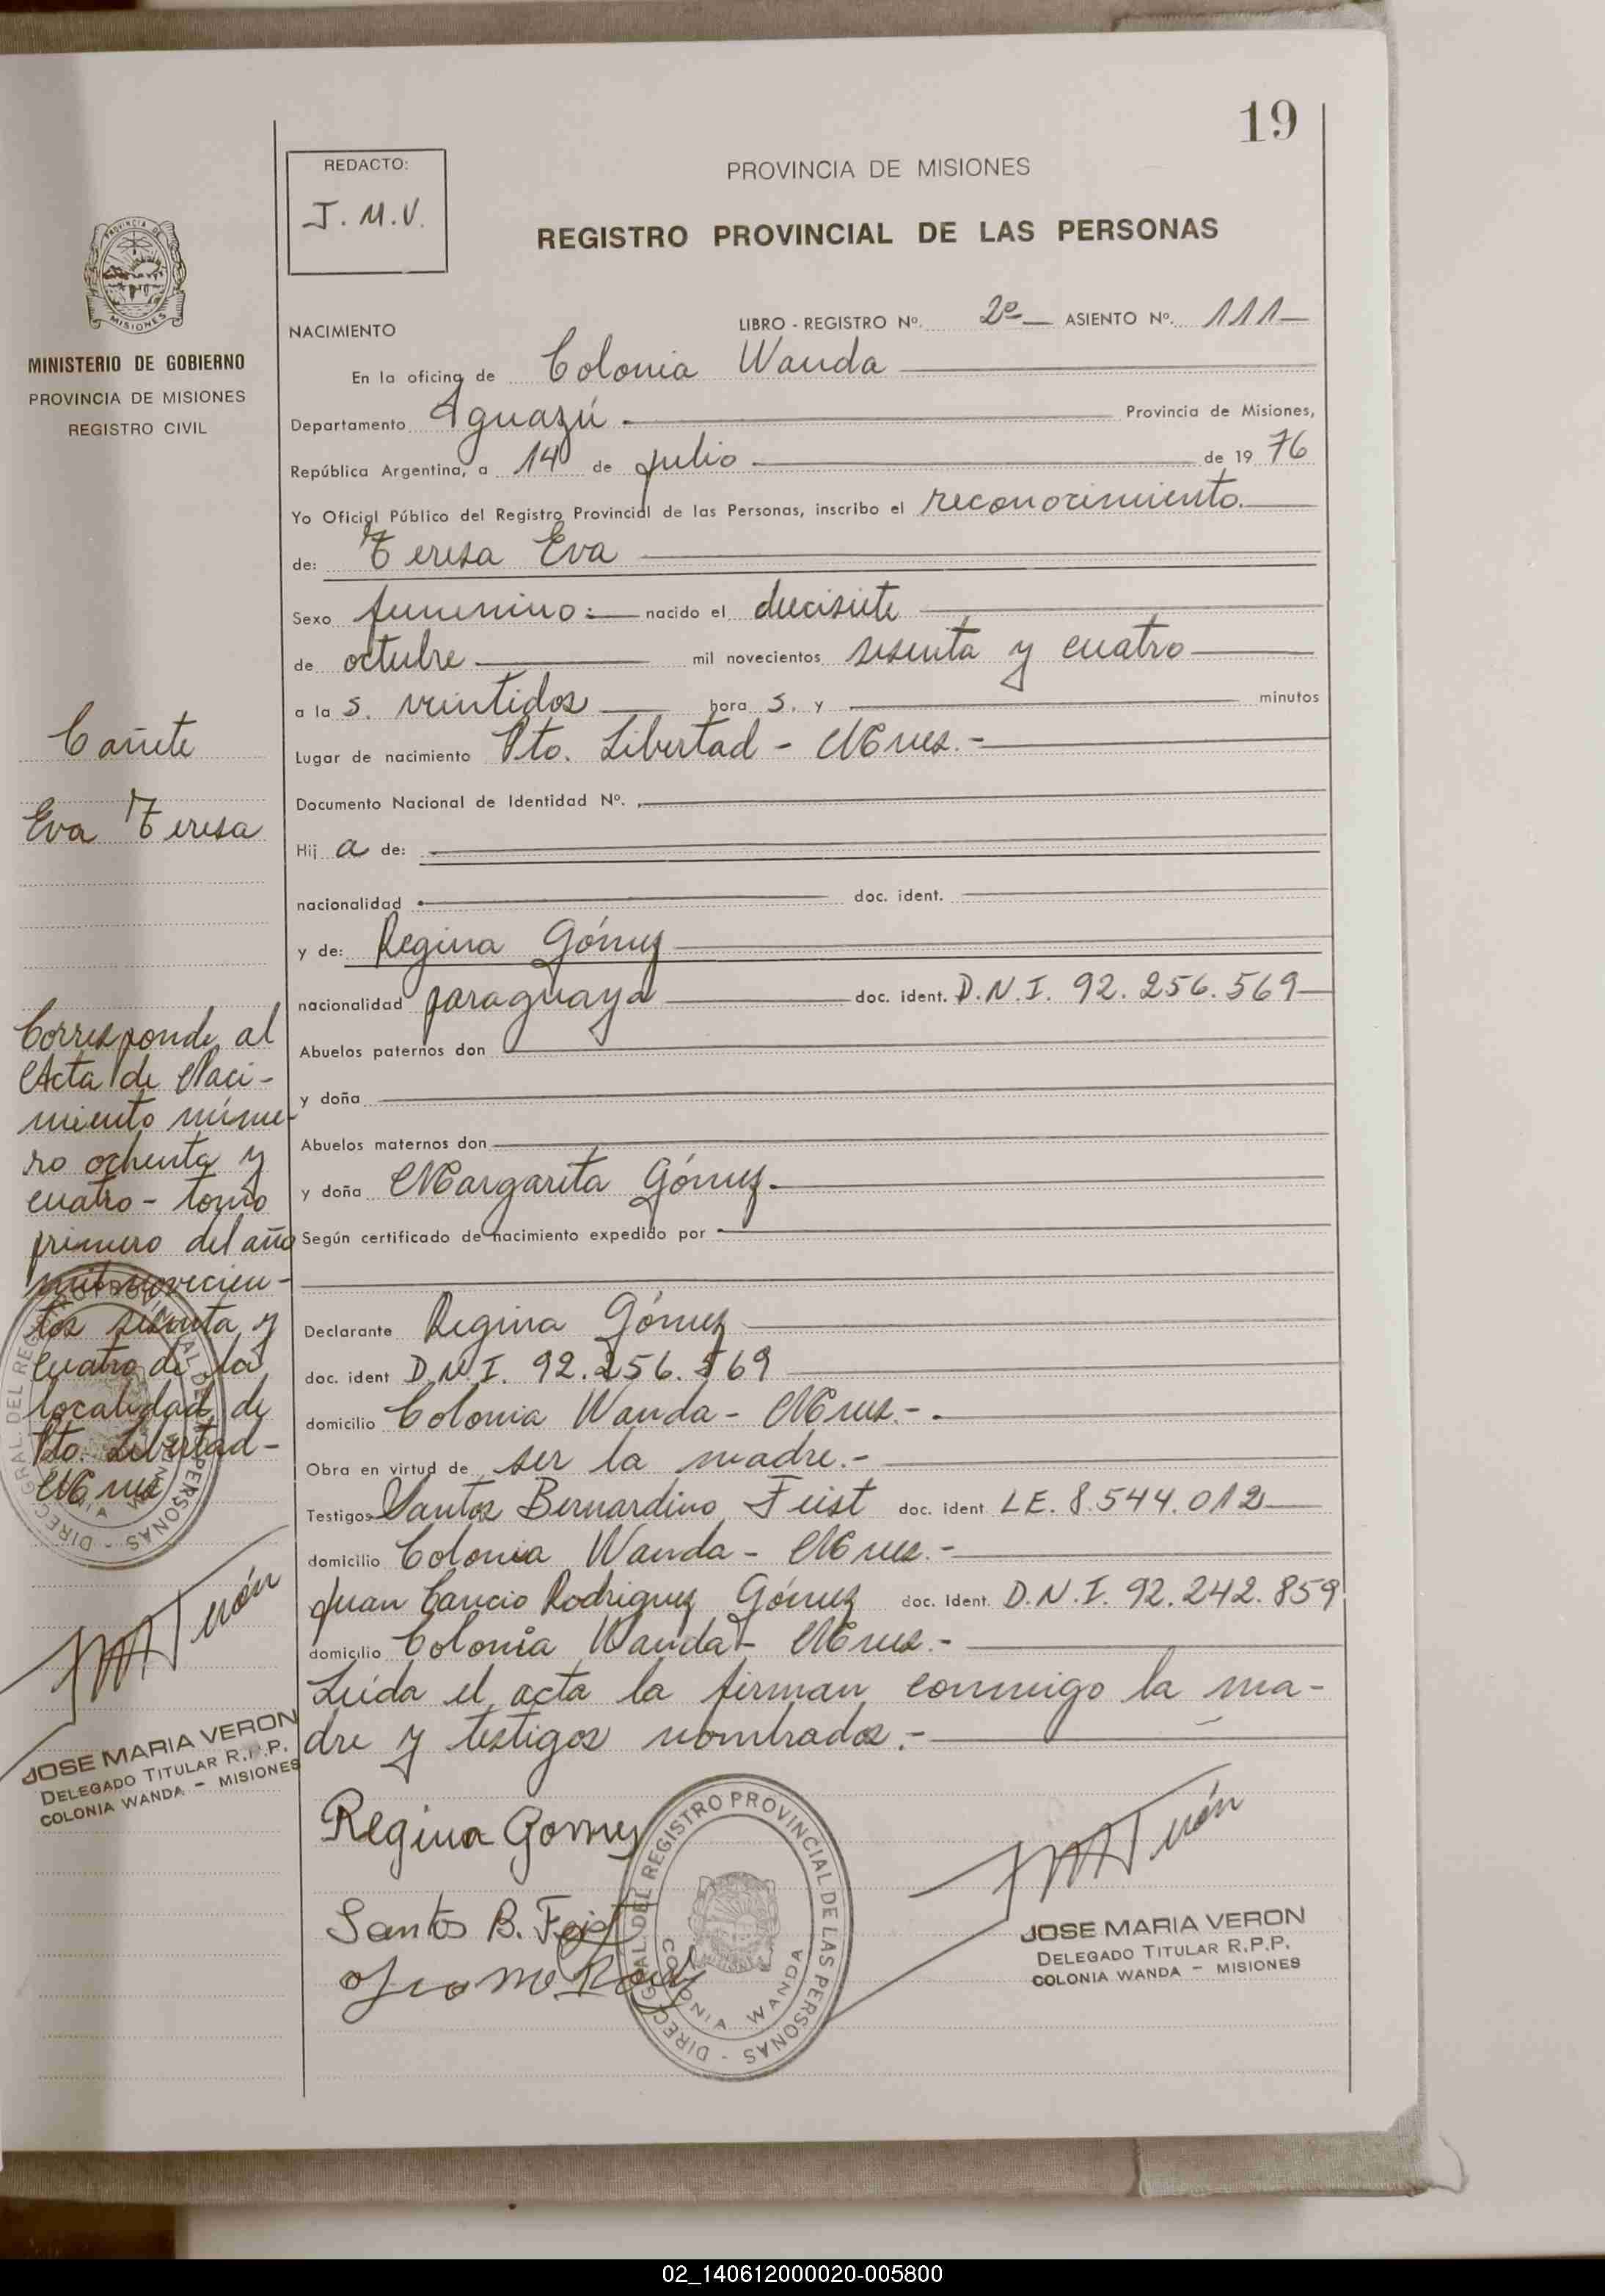 19
REDACTO:
J. M. V.
PROVINCIA DE MISIONES
REGISTRO PROVINCIAL DE LAS PERSONAS
PROVINCIA DE
MISIONES
MINISTERIO DE GOBIERNO
PROVINCIA DE MISIONES
REGISTRO CIVIL
NACIMIENTO
LIBRO - REGISTRO Nº. 2º ASIENTO Nº. 111
En la oficina de Colonia Wanda
Departamento Iguazú Provincia de Misiones,
República Argentina, a 14 de julio de 19 76
Yo Oficial Público del Registro Provincial de las Personas, inscribo el reconocimiento.
de: Teresa Eva
Sexo femenino: nacido el diecisiete
de octubre mil novecientos sesenta y cuatro
a la s. veintidos hora s. y minutos
Lugar de nacimiento Pto. Libertad - Mnes.-
Documento Nacional de Identidad Nº.
Hij a de:
nacionalidad doc. ident.
y de: Regina Gómez
nacionalidad paraguaya doc. ident. D.N.I. 92.256.569
Abuelos paternos don
y doña
Abuelos maternos don
y doña Margarita Gómez.
Según certificado de nacimiento expedido por
Declarante Regina Gómez
doc. ident D.N.I. 92.256.569
domicilio Colonia Wanda - Mnes.-
Obra en virtud de ser la madre.-
Testigos Santos Bernardino Feist doc. ident LE. 8.544.012
domicilio Colonia Wanda - Mnes.-
Juan Cancio Rodriguez Gómez doc. Ident. D.N.I. 92.242.859
domicilio Colonia Wanda - Mnes.-
Leída el acta la firman conmigo la ma-
dre y testigos nombrados.-
Cañete
Eva Teresa
Corresponde al
Acta de Naci-
miento núme-
ro ochenta y
cuatro - tomo
primero del año
mil novecien-
tos sesenta y
cuatro de la
localidad de
Pto. Libertad -
Mnes
JOSE MARIA VERON
DELEGADO TITULAR R.P.P.
COLONIA WANDA - MISIONES
Regina Gomez
Santos B. Feist
DIREC. GRAL. DEL REGISTRO PROVINCIAL DE LAS PERSONAS -
COLONIA WANDA
JOSE MARIA VERON
DELEGADO TITULAR R.P.P.
COLONIA WANDA - MISIONES
02_140612000020-005800